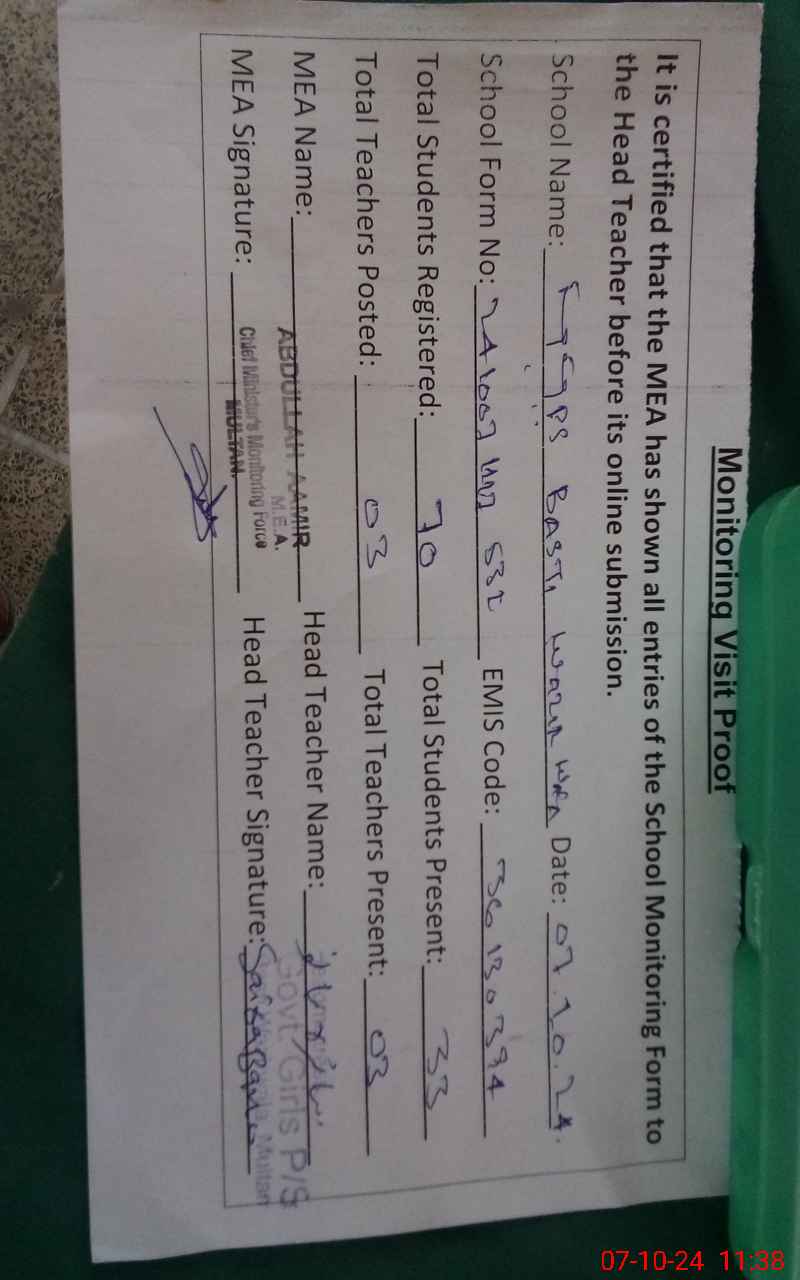 Monitoring Visit Proof
It is certified that the MEA has shown all entries of the School Monitoring Form to
the Head Teacher before its online submission.
School Name: PS BASTI WAZIR Date: 07.10.24.
School Form No: EMIS Code:
Total Students Registered: 70 Total Students Present: 33
Total Teachers Posted: 03 Total Teachers Present: 03
MEA Name: ABDULLAH AAMIR Head Teacher Name:
M.E.A. Govt Girls P/S
Chief Minister's Monitoring Force
MULTAN. Multan
MEA Signature: Head Teacher Signature:
07-10-24 11:38